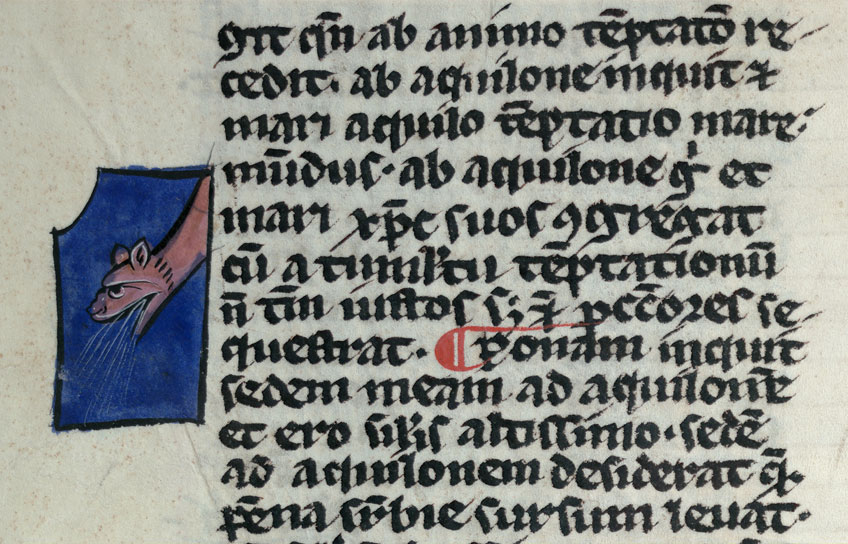 git cū ab animo tēptatō re-
cedit. ab aquilone inquit ⁊
mari aquilo tēptatio mare
mūdus. ab aquilone gͥ et
mari xp̄c suos ꝯgregat
cū a tumultu tēptationū
n̄ tm̄ iustos s; ⁊ pccōres se-
questrat. ¶ Ponam inquit
sedem meam ad aquilonē
et ero silis altissimo. sedē
ad aquilonem desiderat q̄
pēna sūbie sursum leuat.